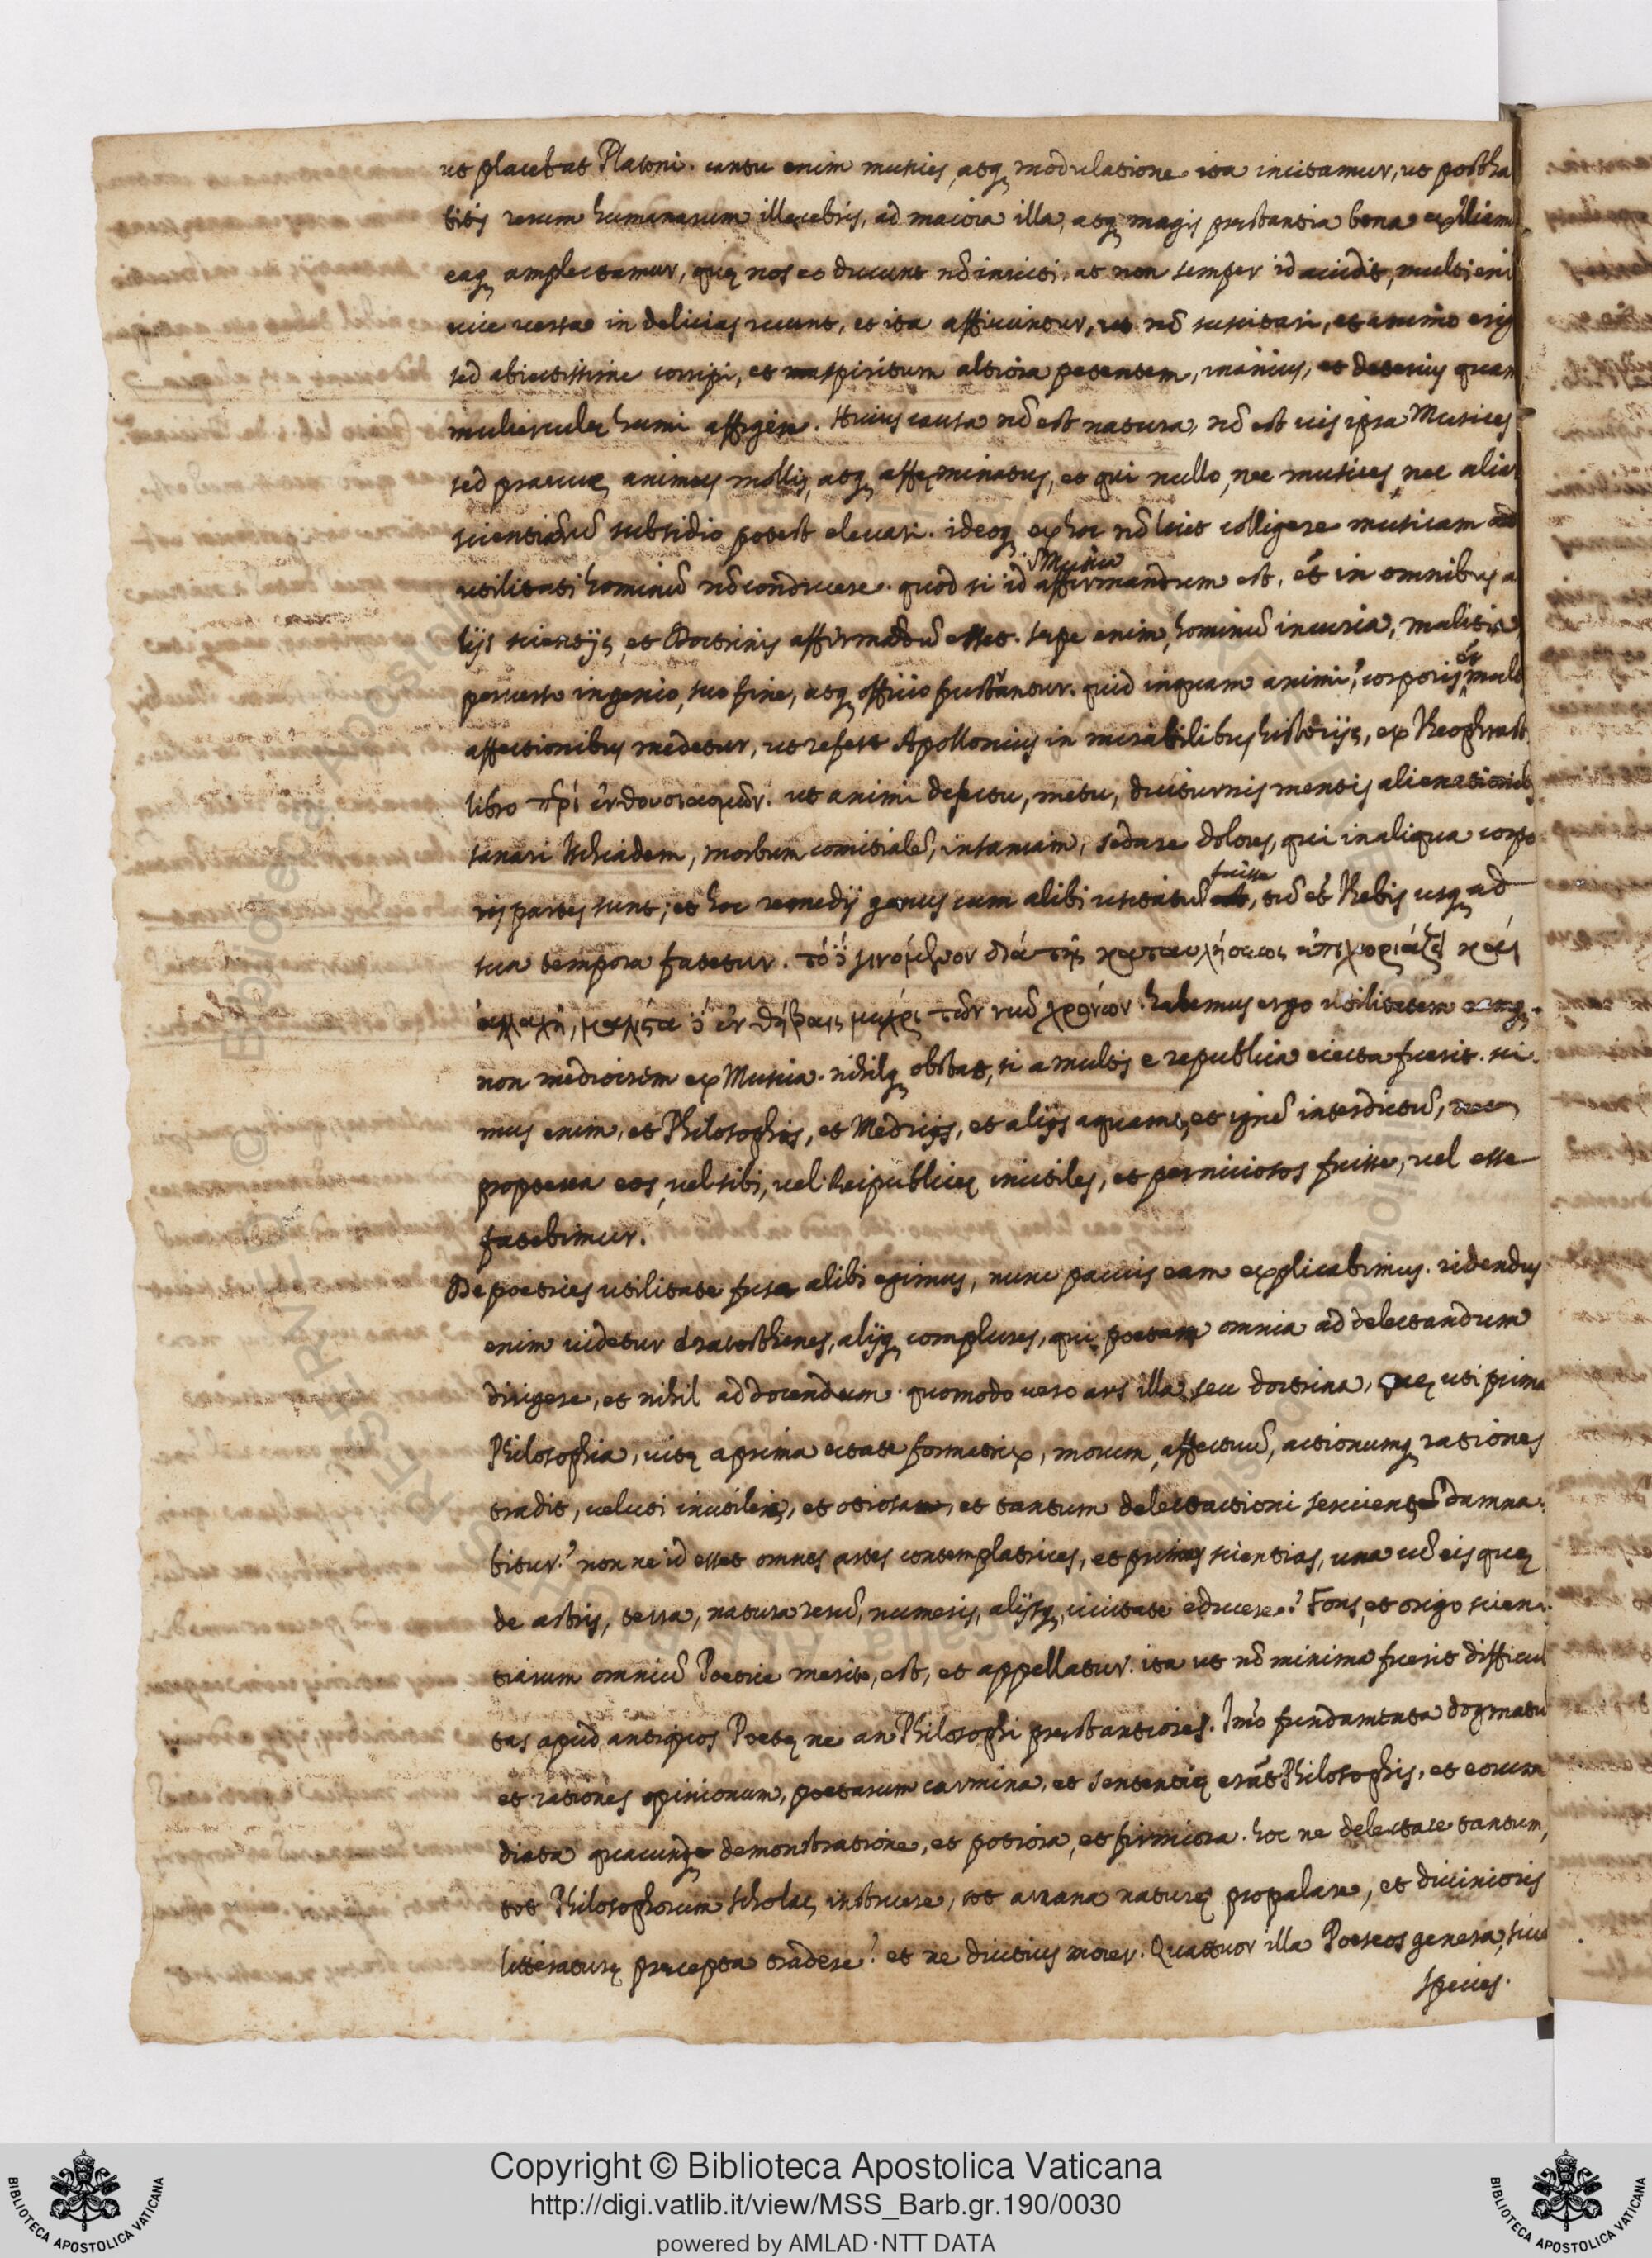 ut placebat Platoni. cantu enim musices, atq modulatione ita incitamur, ut postha
bitis rerum humanarum illecebris, ad maiora illa, atq magis prestantia bona
eaq amplectamur, quę nos eo ducunt nō inviti. at non semper id accidit, multi eni
vice versa in delicias ruunt, et ita afficiuntur, ut nō suscitari, et animo erigi
sed abiectissime corripi, et spiritum altiora petentem, inanius, et deterius quam
mulierculę humi affigere. Huius causa nō est natura, nō est vis ipsa Musices
sed pravus animus mollis, atq affęminatus, et qui nullo, nec musices, nec aliar
scientiarū subsidio potest elevari. ideoq ex hoc nō licet colligere musicam
Musica
utilitati hominū nō conducere. quod si id affirmandum est, et in omnibus a
lijs scientijs, et Doctrinis affirmādū esset. sępe enim, hominū incuria, malitia
et
perverso ingenio, suo fine, atq officio frustrantur. quid inquam animi? corporis mult
affectionibus medetur, ut refert Apollonius in mirabilibus historijs, ex Theophrasti
libro πρὶ ἐνθουσιασμῶν. ut animi defectu, metu, diuturnis mentis alienationib
sanari Ischiadem, morbum comitialē, insaniam, sedare dolores, qui in aliqua corpo
fuisse
ris partes sunt; et hoc remedij genus cum alibi usitatū, tū et Thebis usq ad
sua tempora fatetur. τὸ δὲ γινόμενον διὰ τῆς καταυλήσεως ἐπιχωριάζει καὶ
ἀλλαχῆ, μάλιστα δὲ ἐν Θήβαις μέχρι τῶν νῦν χρόνων. habemus ergo utilitatem
non mediocrem ex Musica. nihilq obstat, si a multis e republica eiecta fuerit. sci
mus enim, et Philosophis, et Medicis, et alijs aquam, et ignē interdictū, nec
propterea eos, vel sibi, vel Reipublicę inutiles, et perniciosos fuisse, vel esse
fatebimur.
De poetices utilitate fuse alibi egimus, nunc paucis eam explicabimus. ridendus
enim videtur Eratosthenes, alijq complures, qui poetam omnia ad delectandum
dirigere, et nihil ad docendum. quomodo vero ars illa, seu doctrina, quę uti prima
Philosophia, vitę a prima ętate formatrix, morum, affectuū, actionumq rationes
tradit, veluti inutilis, et otiosa, et tantum delectationi serviens damna
bitur? non ne id esset omnes artes contemplatrices, et primas scientias, una cū eis quę
de astris, terra, natura rerū, numeris, alijsq, civitate educere? Fons, et origo scien
tiarum omniū Poetice merito, est, et appellatur. ita ut nō minima fuerit difficul
tas apud antiquos Poetę ne an Philosophi pręstantiores. Imo fundamenta dogmatū
et rationes opinionum, poetarum carmina, et sententię erāt Philosophis, et eorum
dicta quacunq demonstratione, et potiora, et firmiora. hoc ne delectare tantum,
tot Philosophorum scholas instruere, tot arcana naturę propalare, et divinioris
litteraturę pręcepta tradere? et ne diutius morer. Quattuor illa Poeseos genera, sive
species.
Copyright © Biblioteca Apostolica Vaticana
http://digi.vatlib.it/view/MSS_Barb.gr.190/0030
powered by AMLAD·NTT DATA
BIBLIOTECA APOSTOLICA VATICANA
BIBLIOTECA APOSTOLICA VATICANA